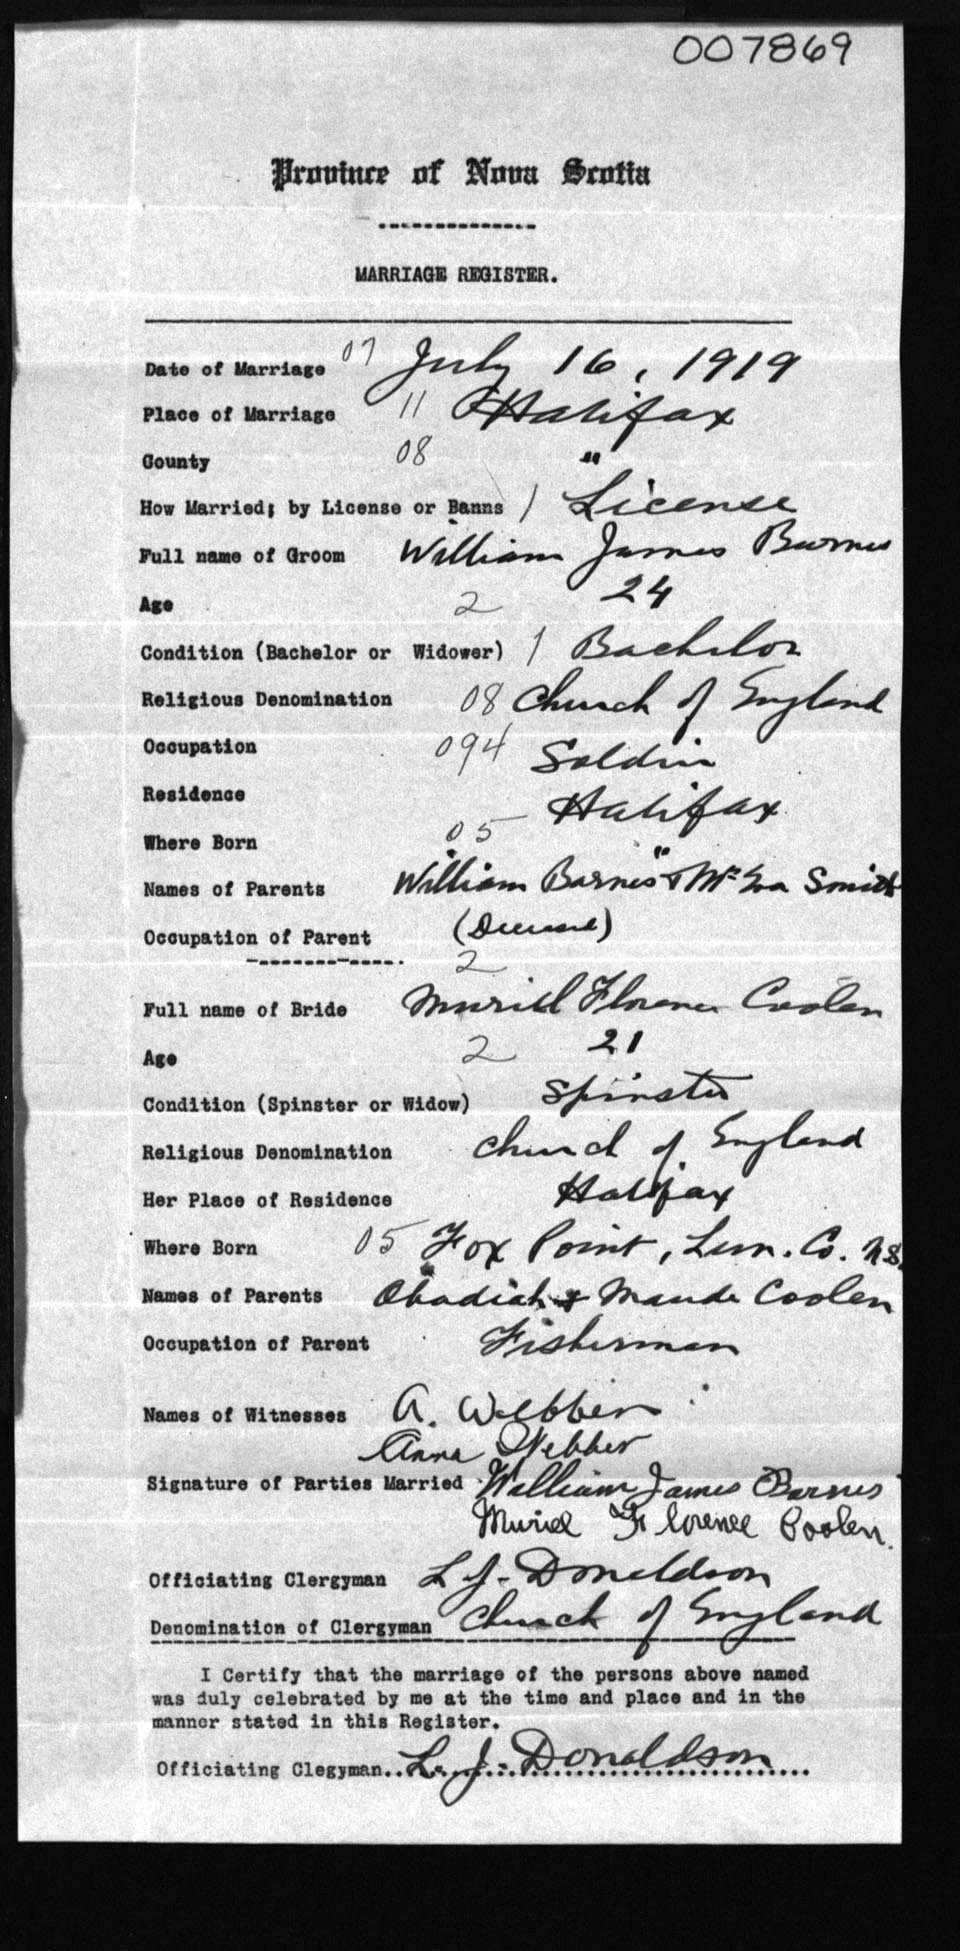 007869
Province of Nova Scotia
MARRIAGE REGISTER.
Date of Marriage 07 July 16, 1919
Place of Marriage 11 Halifax
County 08 "
How Married; by License or Banns 1 License
Full name of Groom William James Barnes
Age 2 24
Condition (Bachelor or Widower) 1 Bachelor
Religious Denomination 08 Church of England
Occupation 094 Soldier
Residence Halifax
Where Born 05 "
Names of Parents William Barnes & Mrs Smith
Occupation of Parent (Deceased)
2
Full name of Bride Muriel Florence Coolen
Age 2 21
Condition (Spinster or Widow) Spinster
Religious Denomination Church of England
Her Place of Residence Halifax
Where Born 05 Fox Point, Lun. Co. N.S.
Names of Parents Obadiah & Maude Coolen
Occupation of Parent Fisherman
Names of Witnesses A. Webber
Anna Webber
Signature of Parties Married William James Barnes
Muriel Florence Coolen.
Officiating Clergyman L. J. Donaldson
Denomination of Clergyman Church of England
I Certify that the marriage of the persons above named
was duly celebrated by me at the time and place and in the
manner stated in this Register.
Officiating Clegyman.. L. J. Donaldson